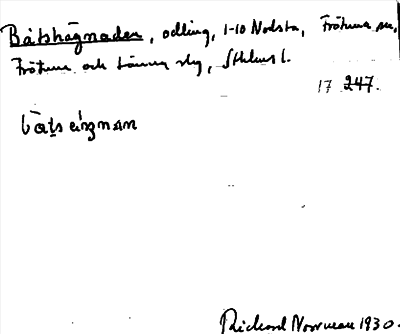 Båtshägnaden, odling, 1-10 Nodsta, Frötuna sn,
Frötuna och Länna slg, Sthlms l.
17 247.
Richard Norrman 1930.